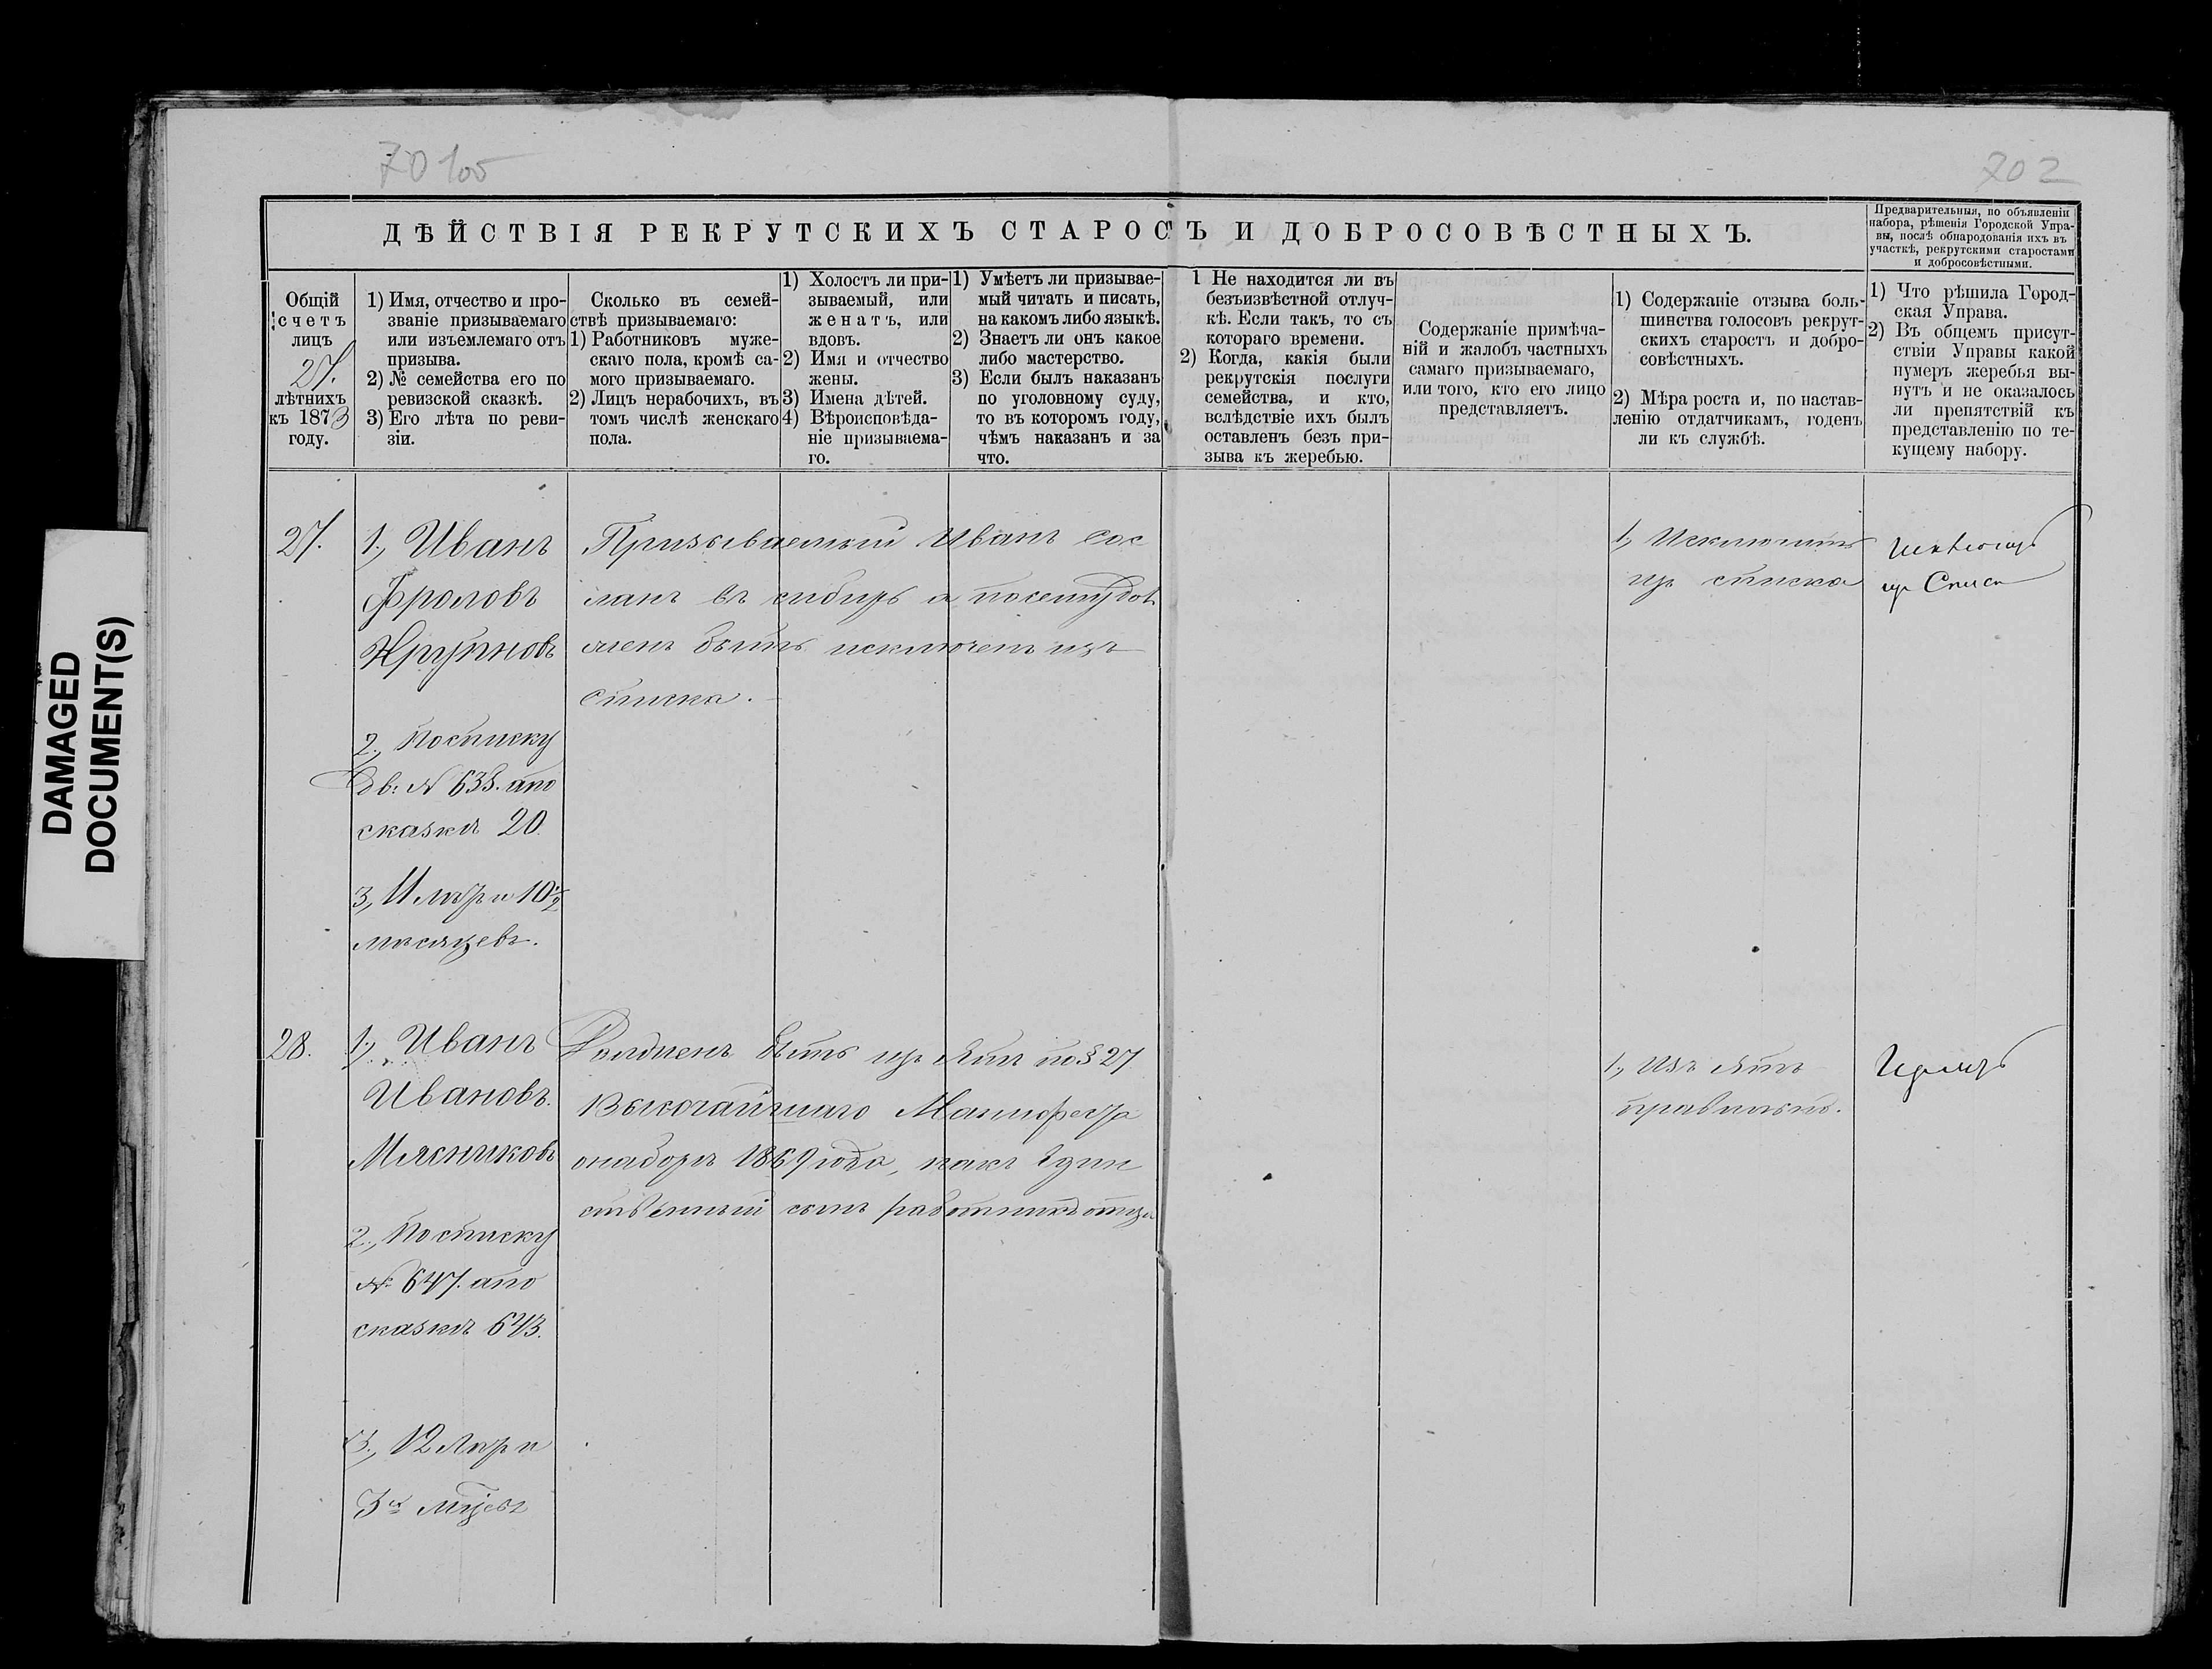 70 105
202
ДѢЙСТВІЯ РЕКРУТСКИХЪ СТАРОСТЪ И ДОБРОСОВѢСТНЫХЪ.
Предварительныя, по объявленіи
набора, рѣшенія Городской Упра-
вы, послѣ обнародованія ихъ въ
участкѣ, рекрутскими старостами
и добросовѣстными.
Общій
счетъ
лицъ
27.
лѣтнихъ
къ 1873
году.
1) Имя, отчество и про-
званіе призываемаго
или изъемлемаго отъ
призыва.
2) № семейства его по
ревизской сказкѣ.
3) Его лѣта по реви-
зіи.
Сколько въ семей-
ствѣ призываемаго:
1) Работниковъ муже-
скаго пола, кромѣ са-
мого призываемаго.
2) Лицъ нерабочихъ, въ
томъ числѣ женскаго
пола.
1) Холостъ ли при-
зываемый, или
женатъ, или
вдовъ.
2) Имя и отчество
жены.
3) Имена дѣтей.
4) Вѣроисповѣда-
ніе призываема-
го.
1) Умѣетъ ли призывае-
мый читать и писать,
на какомъ либо языкѣ.
2) Знаетъ ли онъ какое
либо мастерство.
3) Если былъ наказанъ
по уголовному суду,
то въ которомъ году,
чѣмъ наказанъ и за
что.
1 Не находится ли въ
безъизвѣстной отлуч-
кѣ. Если такъ, то съ
котораго времени.
2) Когда, какія были
рекрутскія послуги
семейства, и кто,
вслѣдствіе ихъ былъ
оставленъ безъ при-
зыва къ жеребью.
Содержаніе примѣча-
ній и жалобъ частныхъ
самаго призываемаго,
или того, кто его лицо
представляетъ.
1) Содержаніе отзыва боль-
шинства голосовъ рекрут-
скихъ старостъ и добро-
совѣстныхъ.
2) Мѣра роста и, по настав-
ленію отдатчикамъ, годенъ
ли къ службѣ.
1) Что рѣшила Город-
ская Управа.
2) Въ общемъ присут-
ствіи Управы какой
нумеръ жеребья вы-
нутъ и не оказалось
ли препятствій къ
представленію по те-
кущему набору.
27.
1., Иванъ
Фроловъ
Крупновъ
2., По списку
дв: № 638. апо
сказкѣ 20
3., 11 лѣтъ и 10 1/2
мѣсяцевъ.
Призываемый Иванъ сос
ланъ въ сибирь а посему дол
женъ быть исключенъ изъ
списка.
1., Исключить
изъ списка
28.
1., Иванъ
Ивановъ.
Мясниковъ
2., По списку
№ 647. апо
сказкѣ 643.
3., 12 лѣтъ и
3х м̃цевъ
Долженъ быть изъятъ по § 27
Высочайшаго Манифеста
онаборѣ 1869 года, какъ Един
ственный сынъ работникъ отца
1., Изъятъ
правильно.
DAMAGED
DOCUMENT(S)